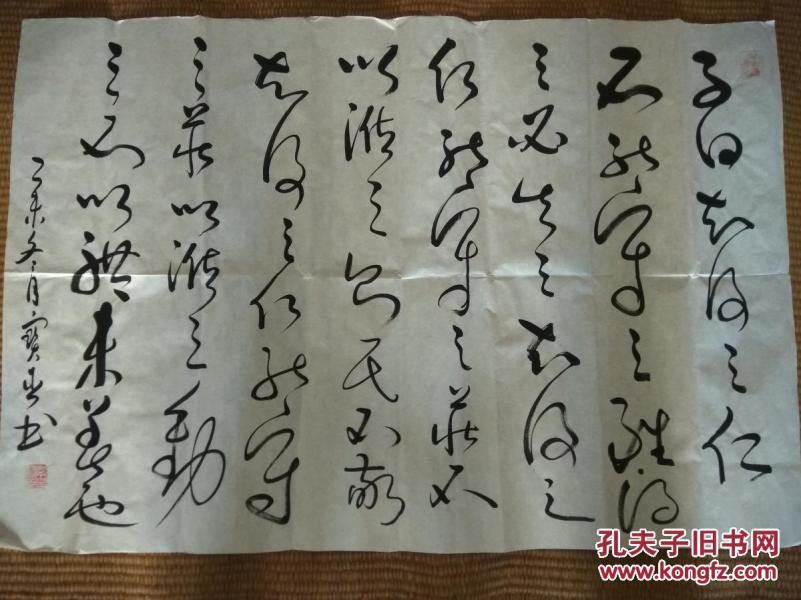 子曰知及之仁
不能守之雖得
之必失之知及之
仁能守之莊不
以涖之則民不敬
知及之仁能守
之莊以涖之動
之不以禮未善也
乙未冬月寶春书
孔夫子旧书网
www.kongfz.com